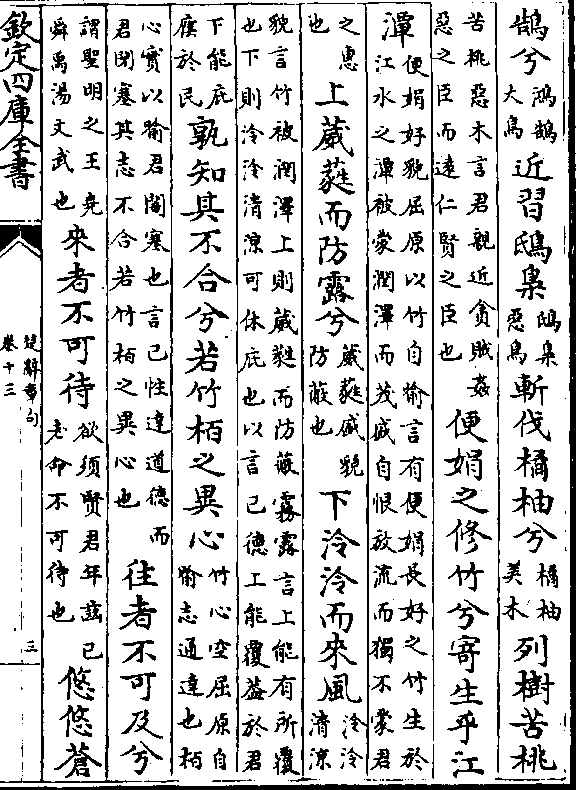 鵠兮鴻鵠大鳥近習鴟梟鴟梟惡鳥斬伐橘柚兮橘柚美木列樹苦桃
苦桃惡木言君親近貪賊姦惡之臣而遠仁賢之臣也便娟之修竹兮寄生乎江
潭便娟好貌屈原以竹自喻言有便娟長好之竹生於江水之潭被蒙潤澤而茂盛自恨放流而獨不蒙君
之惠也上葳蕤而防露兮葳蕤盛貌防蔽也下泠泠而來風泠泠清涼
貌言竹被潤澤上則葳蕤而防蔽霧露言上能有所覆也下則泠泠清涼可休庇也以言己德上能覆蓋於君
下能庇廕於民孰知其不合兮若竹栢之異心竹心空屈原自喻志通達也栢
心實以喻君闇塞也言己性達道德而君閉塞其志不合若竹栢之異心也往者不可及兮
謂聖明之王堯舜禹湯文武也來者不可待欲須賢君年齒已老命不可待也悠悠蒼
欽定四庫全書
楚辭章句
卷十三
三